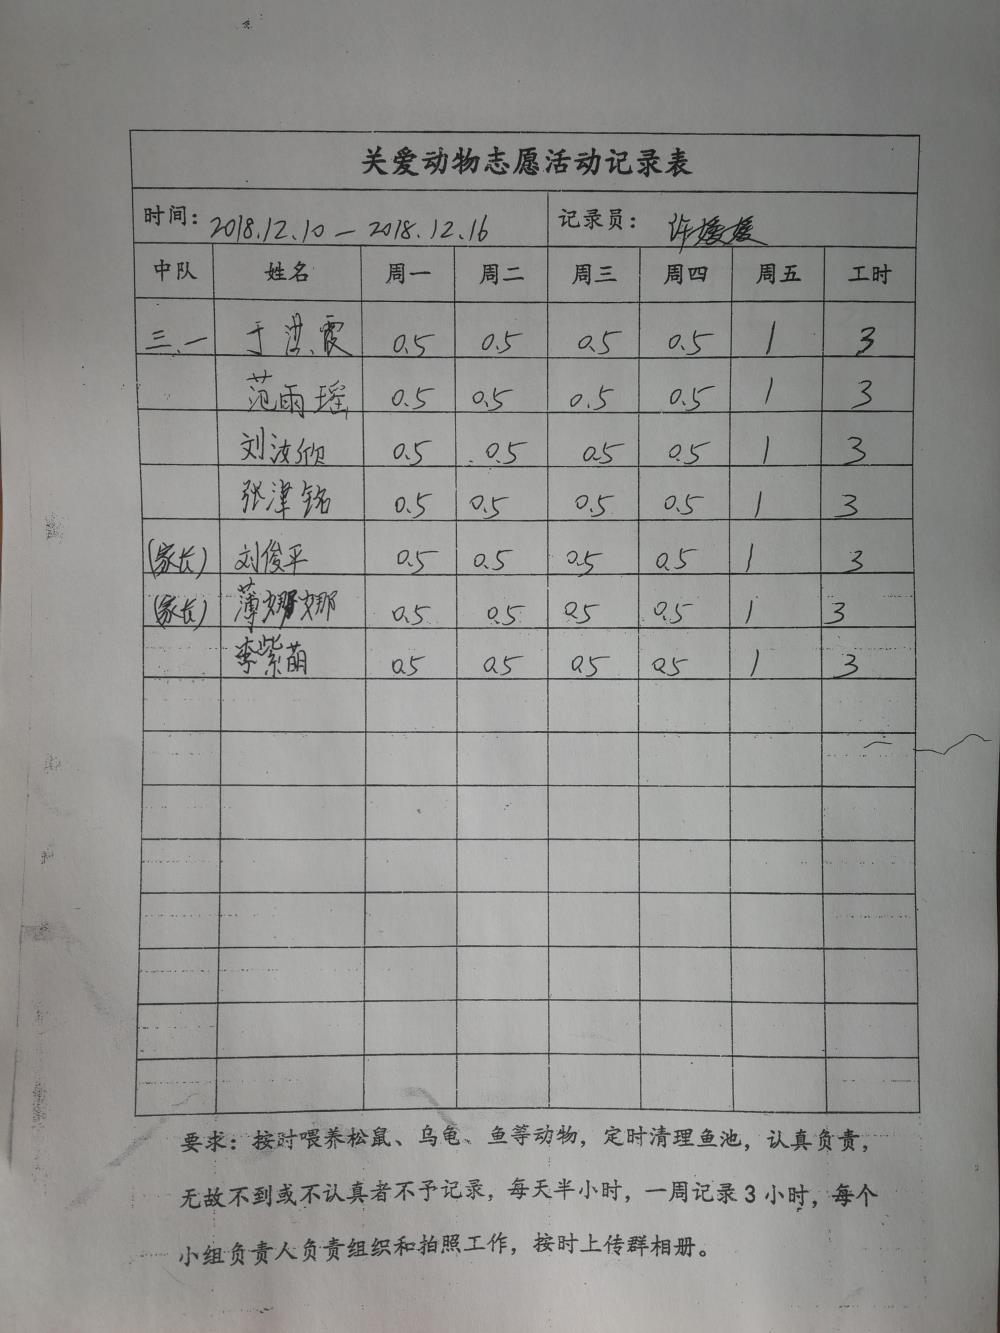 关爱动物志愿活动记录表
时间：2018.12.10—2018.12.16 记录员：许媛媛
中队 姓名 周一 周二 周三 周四 周五 工时
三.一 于洪霞 0.5 0.5 0.5 0.5 1 3
范雨瑶 0.5 0.5 0.5 0.5 1 3
刘汝欣 0.5 0.5 0.5 0.5 1 3
张津铭 0.5 0.5 0.5 0.5 1 3
(家长) 刘俊平 0.5 0.5 0.5 0.5 1 3
(家长) 薄娜娜 0.5 0.5 0.5 0.5 1 3
李紫萌 0.5 0.5 0.5 0.5 1 3
要求：按时喂养松鼠、乌龟、鱼等动物，定时清理鱼池，认真负责，
无故不到或不认真者不予记录，每天半小时，一周记录3小时，每个
小组负责人负责组织和拍照工作，按时上传群相册。